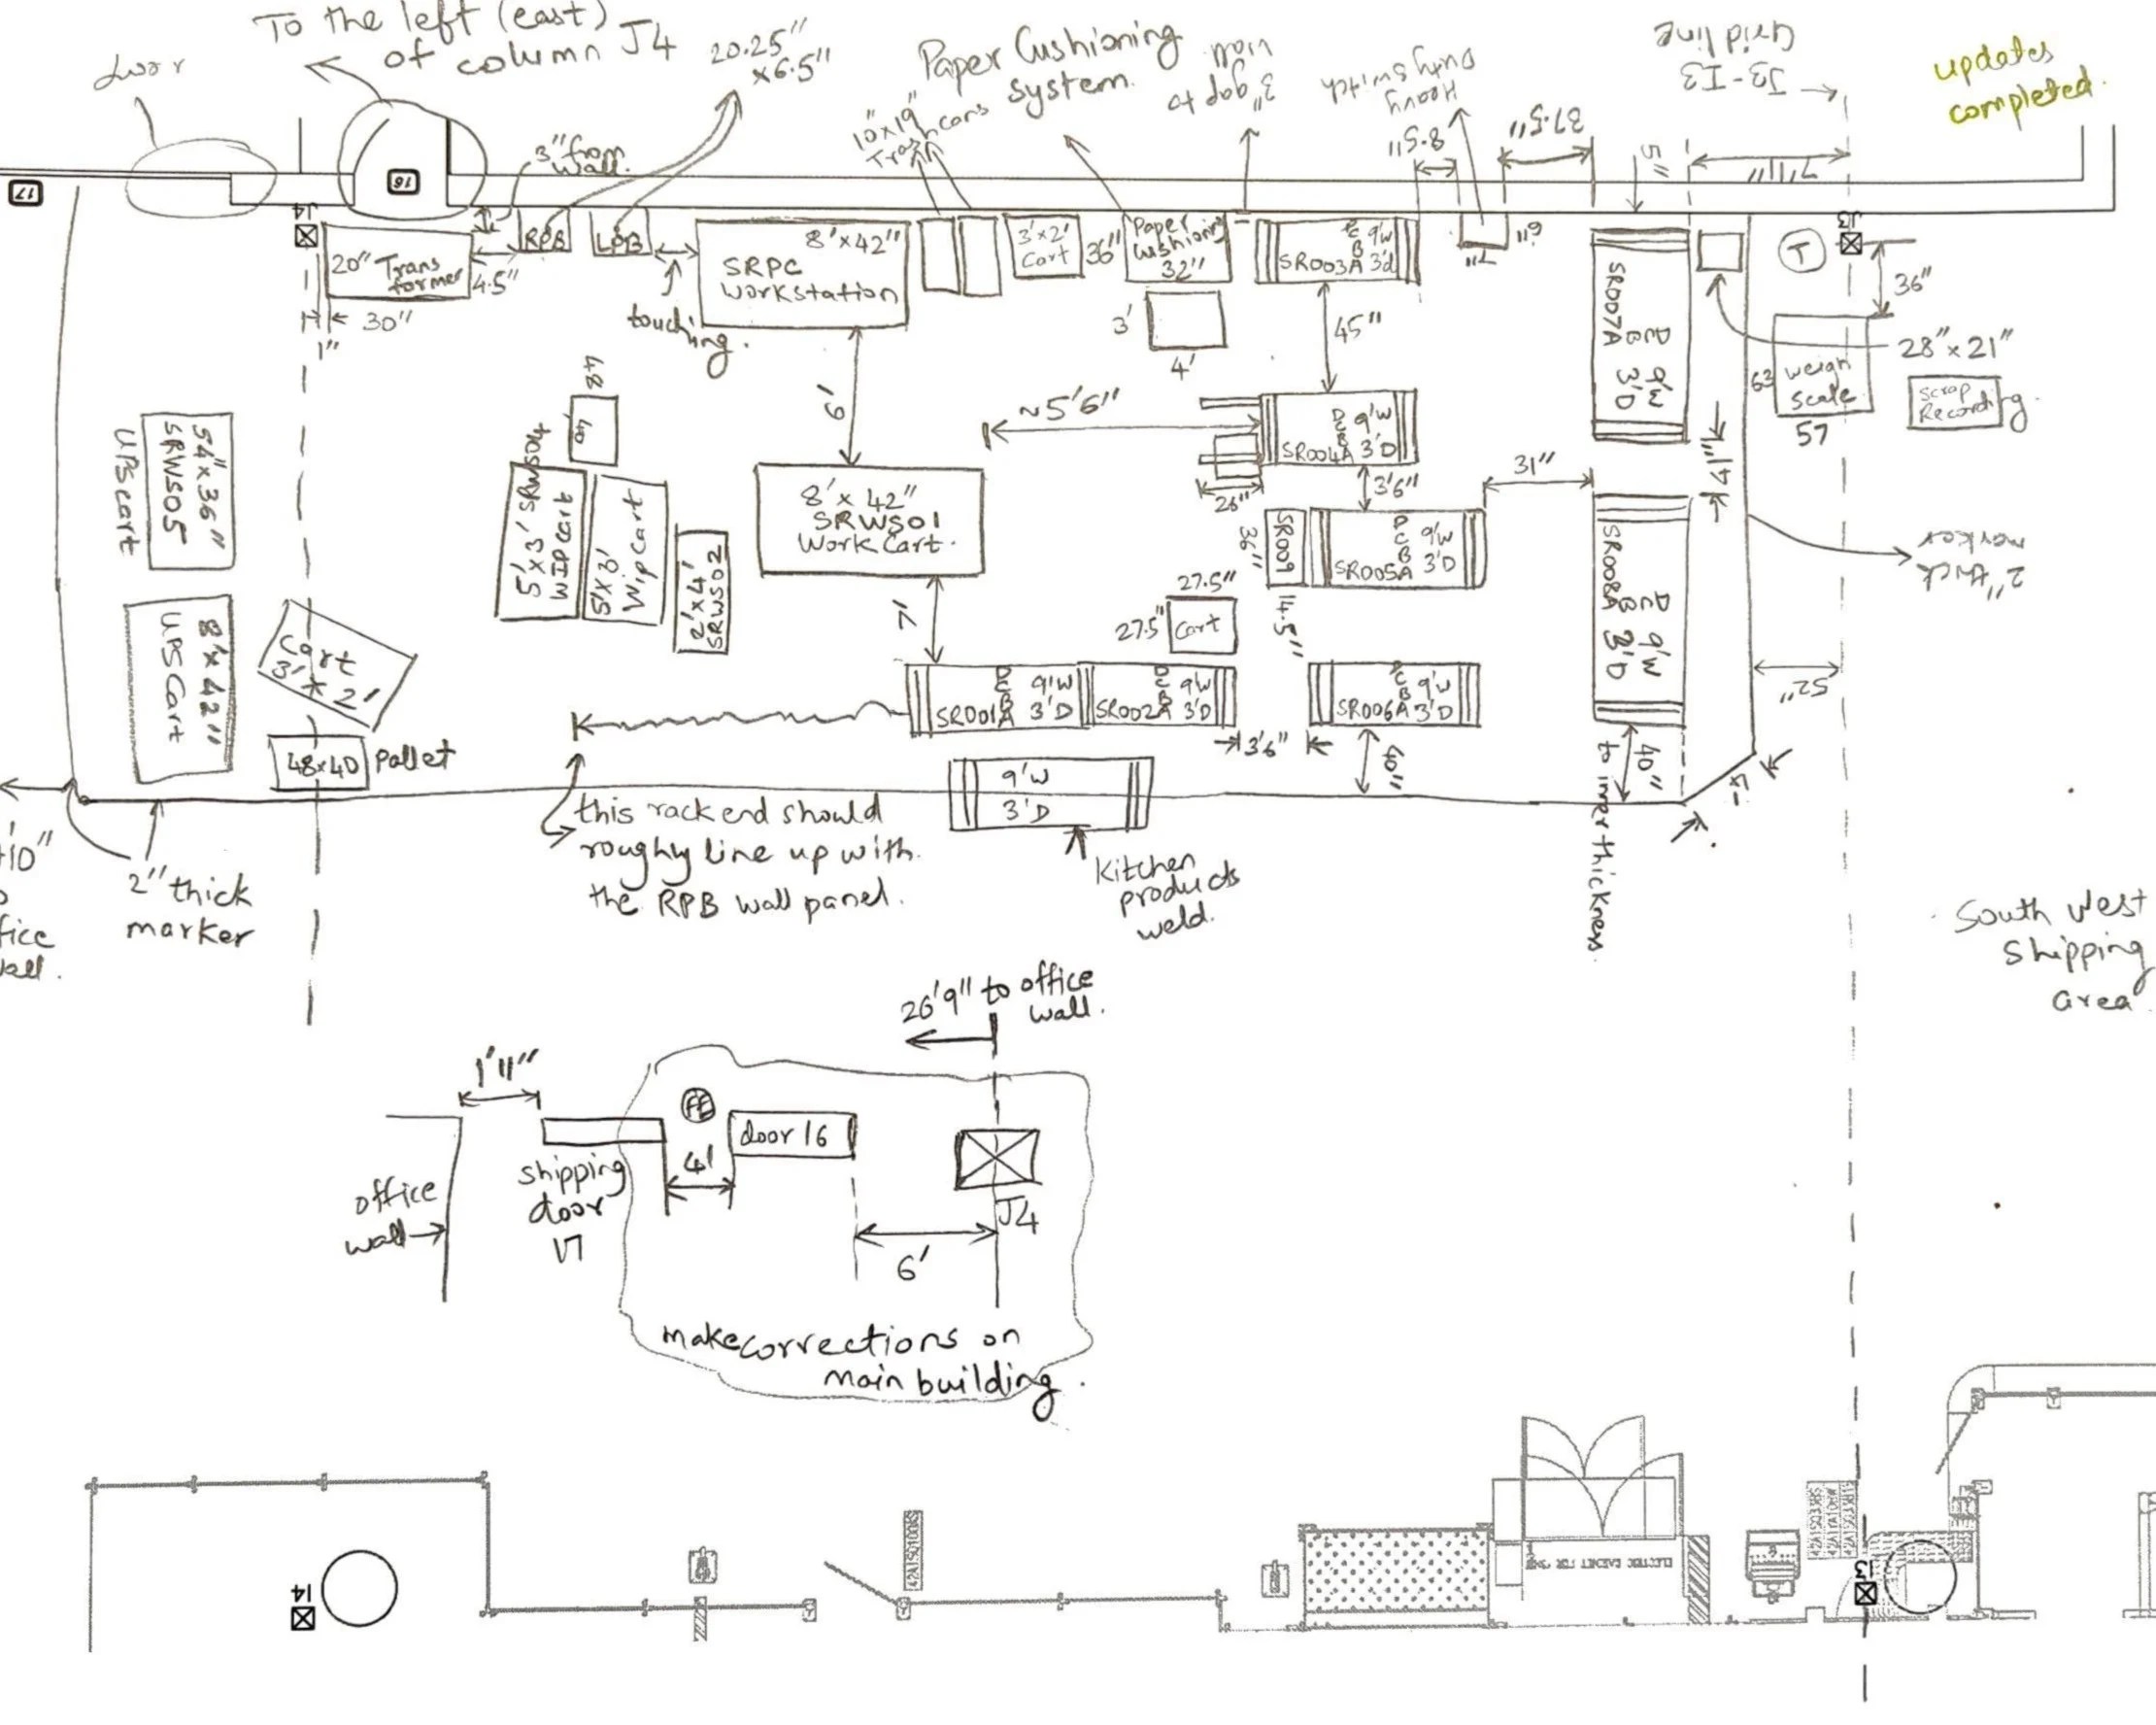 To the left (east)
of column J4
door
20.25"
x6.5"
Paper Cushioning
system.
3" gap to
wall
Heavy
Duty switch
J3-I3
Grid line
updates
completed.
10"x19"
Trash cans
3" from
wall.
8.5"
37.5"
5"
7'11"
17
16
J4
J3
20" Trans
former
4.5"
30"
1"
RPB
LPB
touching.
8'x42"
SRPC
Workstation
3'x2'
Cart
36"
Paper
Cushioning
32"
3'
4'
D
C
B
9'W
SR003A 3'd
7"
6"
45"
SR007A
D
C
B
9'W
3'D
T
36"
28"x21"
63
weigh
scale
57
Scrap
Recording
54"x36"
SRWS05
UPS cart
48
40
5'x3' SRWS04
WIP cart
5'x3'
Wip cart
2'x4'
SRWS02
6'
~5'6"
8'x 42"
SRWS01
Work Cart.
D
C
B
9'W
SR004A 3'D
26"
3'6"
31"
41"
SR009
36"
14.5"
D
C
B
9'W
SR005A 3'D
SR008A
D
C
B
9'W
3'D
2" thick
marker
52"
8'x42"
UPS Cart
Cart
3'x2'
48x40
Pallet
7'
27.5"
27.5"
Cart
D
C
B
9'W
SR001A 3'D
D
C
B
9'W
SR002A 3'D
D
C
B
9'W
SR006A 3'D
3'6"
40"
40"
to inner thickness.
4'
9'W
3'D
Kitchen
products
weld.
this rack end should
roughly line up with
the RPB wall panel.
2" thick
marker
10"
fice
South West
Shipping
area
26'9" to office
wall.
1'11"
FE
door 16
4'
shipping
door
17
office
wall
J4
6'
make corrections on
main building.
I4
I3